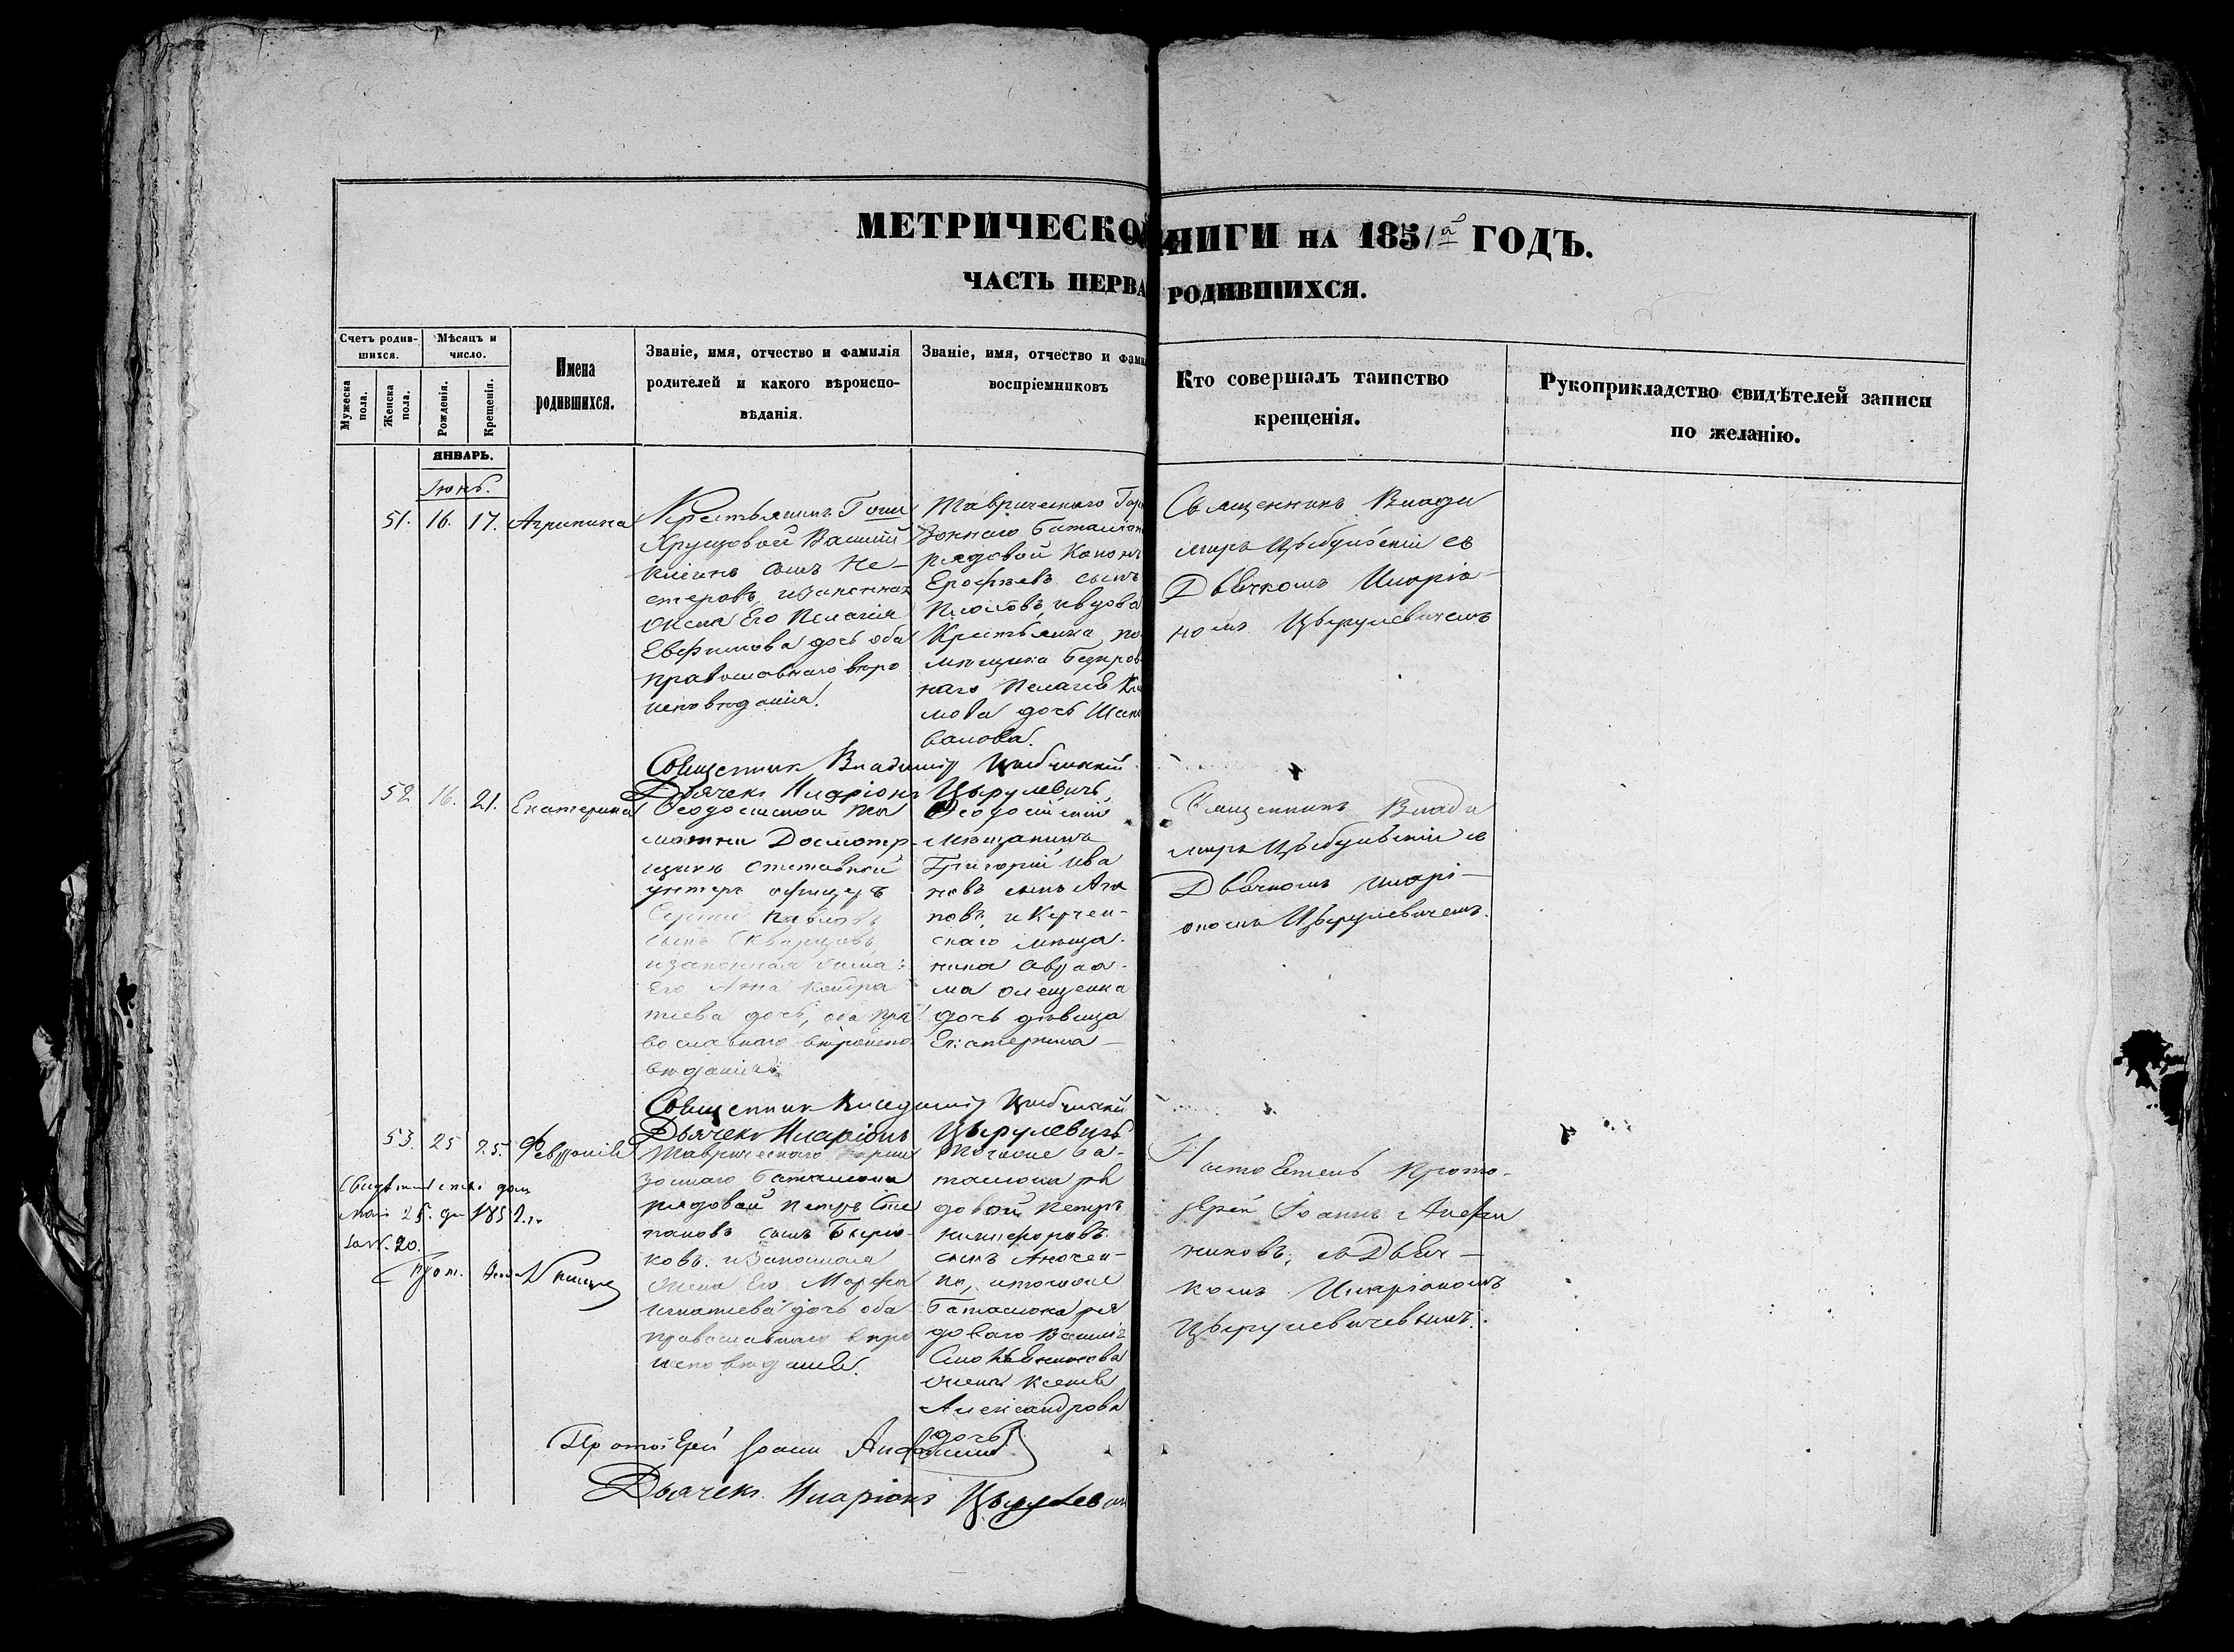 МЕТРИЧЕСКОЙ
НИГИ НА 1851й ГОДЪ.
ЧАСТЬ ПЕРВА
РОДИВШИХСЯ.
Счетъ родив-
шихся.
Мѣсяцъ и
число.
Мужеска
пола.
Женска
пола.
Рожденія.
Крещенія.
Имена
родившихся.
Званіе, имя, отчество и фамилія
родителей и какого вѣроиспо-
вѣданія.
Званіе, имя, отчество и фами
воспріемниковъ
Кто совершалъ таинство
крещенія.
Рукоприкладство свидѣтелей записи
по желанію.
ЯНВАРЬ.
Іюнь.
51. 16. 17. Агрипина
Крестьянинъ
Хрущовой Василій
сынъ Не-
стеровъ, изаконная
жена Его Пелагія
Евфимова дочь оба
православнаго вѣро
исповѣданія.
Таврическаго Гар
зоннаго баталіон
рядовой Конон
Ерофѣевъ сынъ
и вдова
Крестьянка по-
мѣщика
наго Пелагія
мова дочь
валова.
Священникъ Влади
миръ Цыбульскій съ
Дьячкомъ Иларіо-
номъ Цырулевичемъ
Священникъ Владиміръ Цыбульскій
Дьячекъ Иларіонъ Цырулевичъ
52 16. 21. Екатерина
Ѳеодосійской та
можни Досмотр-
щикъ отставной
унтеръ офицеръ
Сергій Павловъ
сынъ Скварцовъ
изаконная жена
Его Анна Кондра
тіева дочь, оба пра
вославнаго вѣроиспо
вѣданія.
Ѳеодосійскій
мѣщанинъ
Григорій Ива
новъ сынъ Ага
повъ, и Керчен-
скаго мѣща-
нина Авраа-
ма Олещенка
дочь дѣвица
Екатерина
Священникъ Влади
миръ Цыбульскій съ
Дьячкомъ Иларі-
ономъ Цырулевичемъ.
Священникъ Владиміръ Цыбульскій
Дьячекъ Иларіонъ Цырулевичъ
53. 25 25. Февронія
Таврическаго гарни
зоннаго баталіона
рядовой Петръ Сте
пановъ сынъ Бирю-
ковъ. изаконная
жена Его Марфа
Игнатіева дочь оба
православнаго вѣро
исповѣданія.
Тогоже ба-
таліона ря
довой Петръ
Никифоровъ
сынъ
ко, итогоже
баталіона ря
доваго Василія
жена Ксенія
Александрова
дочь
Настоятель Прото-
іерей Іоаннъ Анфи
никовъ, съ Дьяч-
комъ Иларіономъ
Цырулевичевымъ.
мая 25. дня 1852. г.
за №. 20.
Прот.
Протоіерей Іоаннъ
Дьячекъ Иларіонъ Цырулевич